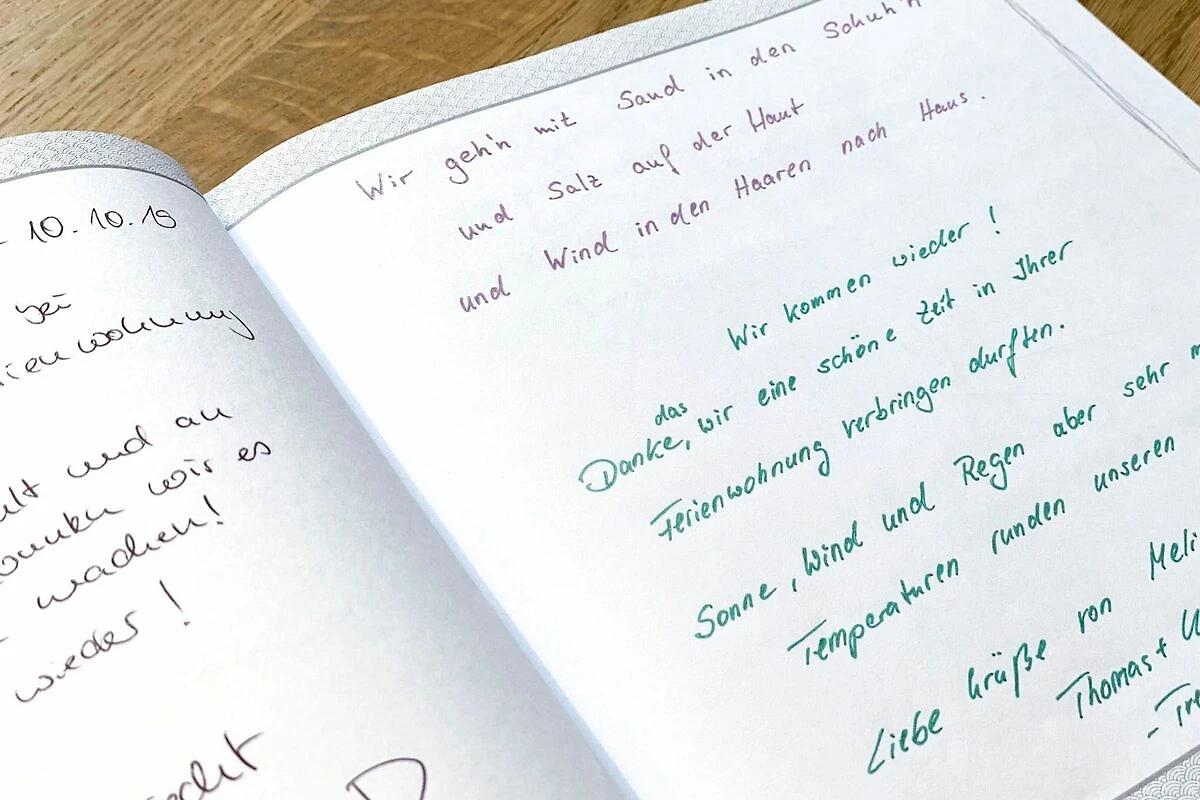 - 10.10.19
bei
ienwohnung
und an
wir es
wachen!
wieder!
Wir geh'n mit Sand in den Schuh'n
und Salz auf der Haut
und Wind in den Haaren nach Haus.
Wir kommen wieder!
das
Danke, wir eine schöne Zeit in Ihrer
Ferienwohnung verbringen durften.
Sonne, Wind und Regen aber sehr m
Temperaturen runden unseren
Liebe Grüße von Meli
Thomas + U
- Tre